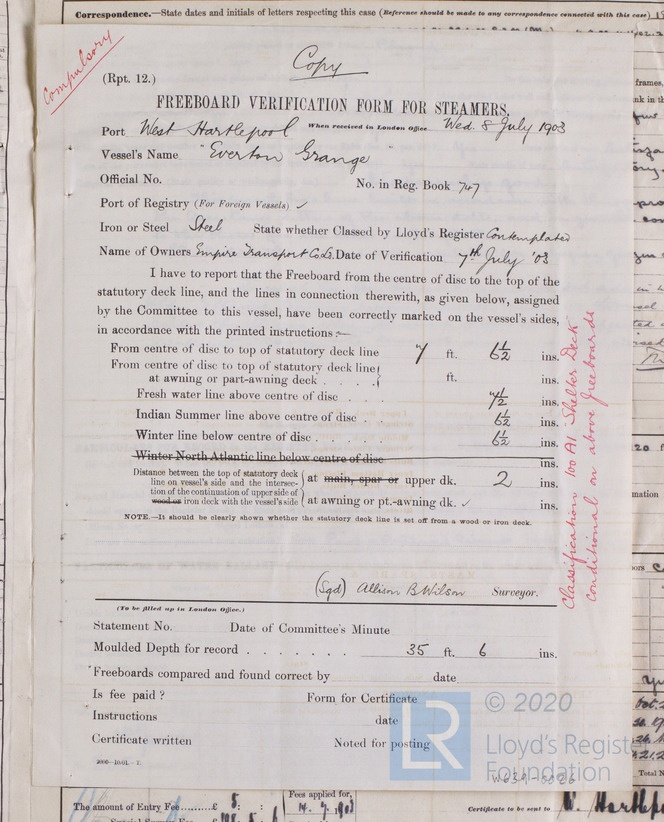 Correspondence.—State dates and initials of letters respecting this case (Reference should be made to any correspondence connected with this case)
Compulsory
Copy
(Rpt. 12.)
FREEBOARD VERIFICATION FORM FOR STEAMERS.
Port West Hartlepool When received in London Office Wed. 8 July 1903
Vessel's Name "Everton Grange"
Official No. No. in Reg. Book 747
Port of Registry (For Foreign Vessels) ✓
Iron or Steel Steel State whether Classed by Lloyd's Register Contemplated
Name of Owners Empire Transport Co Ld. Date of Verification 7th July '03
I have to report that the Freeboard from the centre of disc to the top of the
statutory deck line, and the lines in connection therewith, as given below, assigned
by the Committee to this vessel, have been correctly marked on the vessel's sides,
in accordance with the printed instructions:—
From centre of disc to top of statutory deck line 7 ft. 6½ ins.
From centre of disc to top of statutory deck line
at awning or part-awning deck . . . . ft. ins.
Fresh water line above centre of disc . . . 7½ ins.
Indian Summer line above centre of disc . . 6½ ins.
Winter line below centre of disc . . . 6½ ins.
Winter North Atlantic line below centre of disc ins.
Distance between the top of statutory deck
line on vessel's side and the intersec- at main, spar or upper dk. 2 ins.
tion of the continuation of upper side of
wood or iron deck with the vessel's side at awning or pt.-awning dk. ✓ ins.
NOTE.—It should be clearly shown whether the statutory deck line is set off from a wood or iron deck.
Classification 100 A1 Shelter Deck
conditional on above freeboards
(Sgd) Allison B Wilson Surveyor.
(To be filled up in London Office.)
Statement No. Date of Committee's Minute
Moulded Depth for record . . . . . . . 35 ft. 6 ins.
Freeboards compared and found correct by date
Is fee paid ? Form for Certificate
Instructions date
Certificate written Noted for posting
2000—10.01.—T.
LR
© 2020
Lloyd's Register
Foundation
W639-0026
The amount of Entry Fee.........£ 5 : :
Fees applied for,
Certificate to be sent to W. Hartlep
Total N